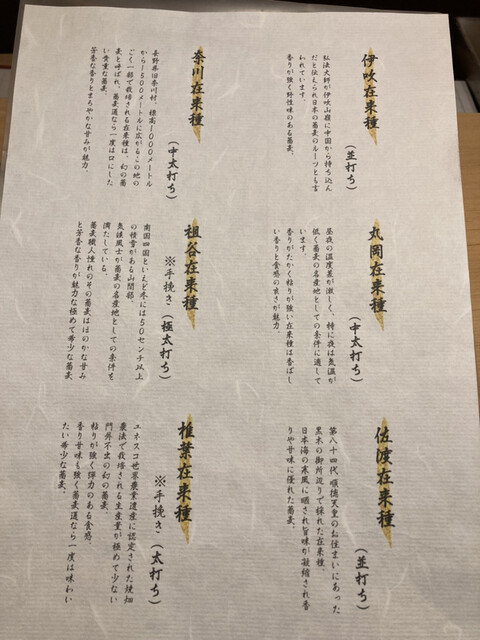 伊吹在来種
（並打ち）
弘法大師が伊吹山嶺に中国から持ち込ん
だと伝えられ日本の蕎麦のルーツとも言
われています。
香りが強く野性味のある蕎麦。
奈川在来種
（中太打ち）
長野県旧奈川村、標高1000メートル
から1500メートルに広がるこの地の
ごく一部で栽培される在来種は、幻の蕎
麦と呼ばれ、蕎麦通なら一度は口にした
い貴重な蕎麦。
芳香な香りとまろやかな甘みが魅力。
丸岡在来種
（中太打ち）
昼夜の温度差が激しく、特に夜は気温が
低く蕎麦の名産地としての条件に適して
います。
香りがたかく粘りが強い在来種は香ばし
い香りと食感の良さが魅力。
祖谷在来種
※手挽き（極太打ち）
南国四国といえど冬には50センチ以上
の積雪がある山間部。
気候風土が蕎麦の名産地としての条件を
満たしている。
蕎麦職人憧れのその蕎麦はほのかな甘み
と芳香な香りが魅力な極めて希少な蕎麦。
佐渡在来種
（並打ち）
第八十四代 順徳天皇のお住まいにあった
黒木の御所辺りで採れた在来種。
日本海の寒風に晒され旨味が凝縮され香
りや甘味に優れた蕎麦。
椎葉在来種
※手挽き（太打ち）
ユネスコ世界農業遺産に認定された焼畑
農法で栽培される生産量が極めて少ない
門外不出の幻の蕎麦。
粘りが強く弾力のある食感、
香り甘味も強く蕎麦通なら一度は味わい
たい希少な蕎麦。